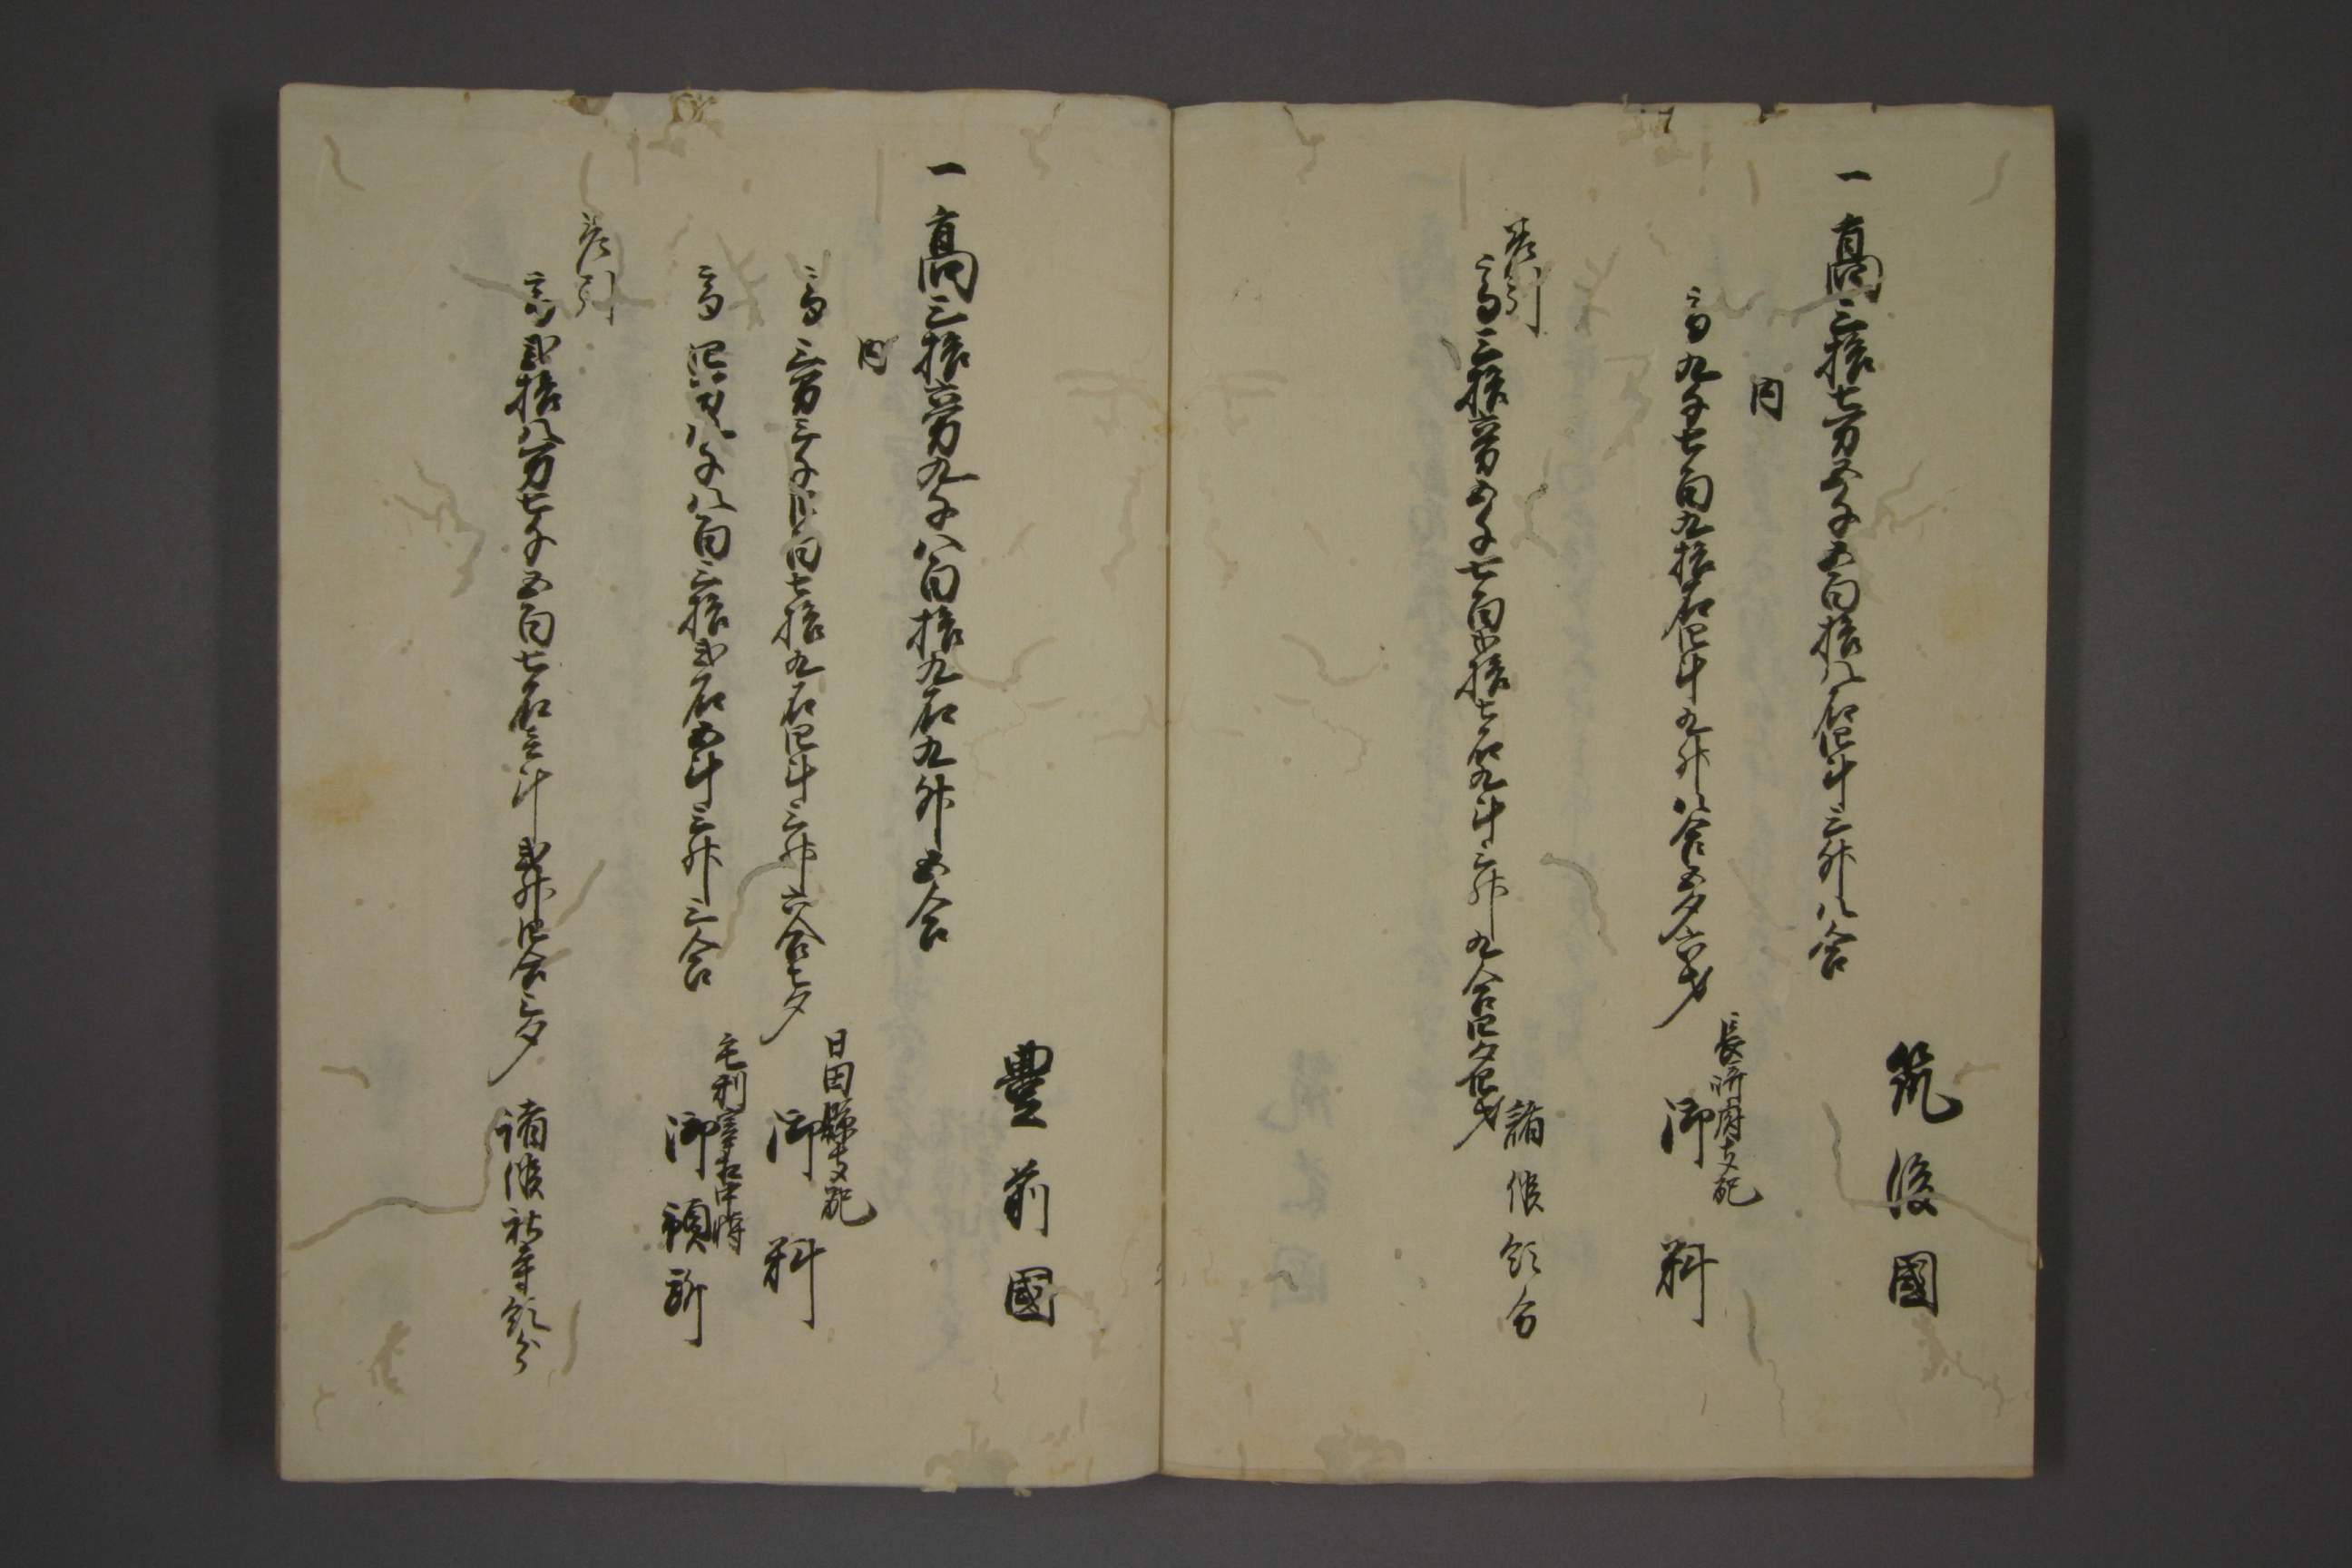 筑後國
一高三拾七万五千五百拾八石四斗三升八合
内
長崎府支配
高九千七百九拾石四斗九升八合五夕六才 御料
差引
高三拾六万五千七百弐拾七石九斗三升九合四夕四才 諸侯領分
豊前國
一高三拾六万九千八百拾九石九升五合
内
日田縣支配
高三万三千四百七拾九石四斗三升六合七夕 御料
毛利宰相中将
高四万八千八百三拾弐石五斗三升三合 御預所
差引
高弐拾八万七千五百七石壱斗弐升四合三夕 諸侯社寺領分